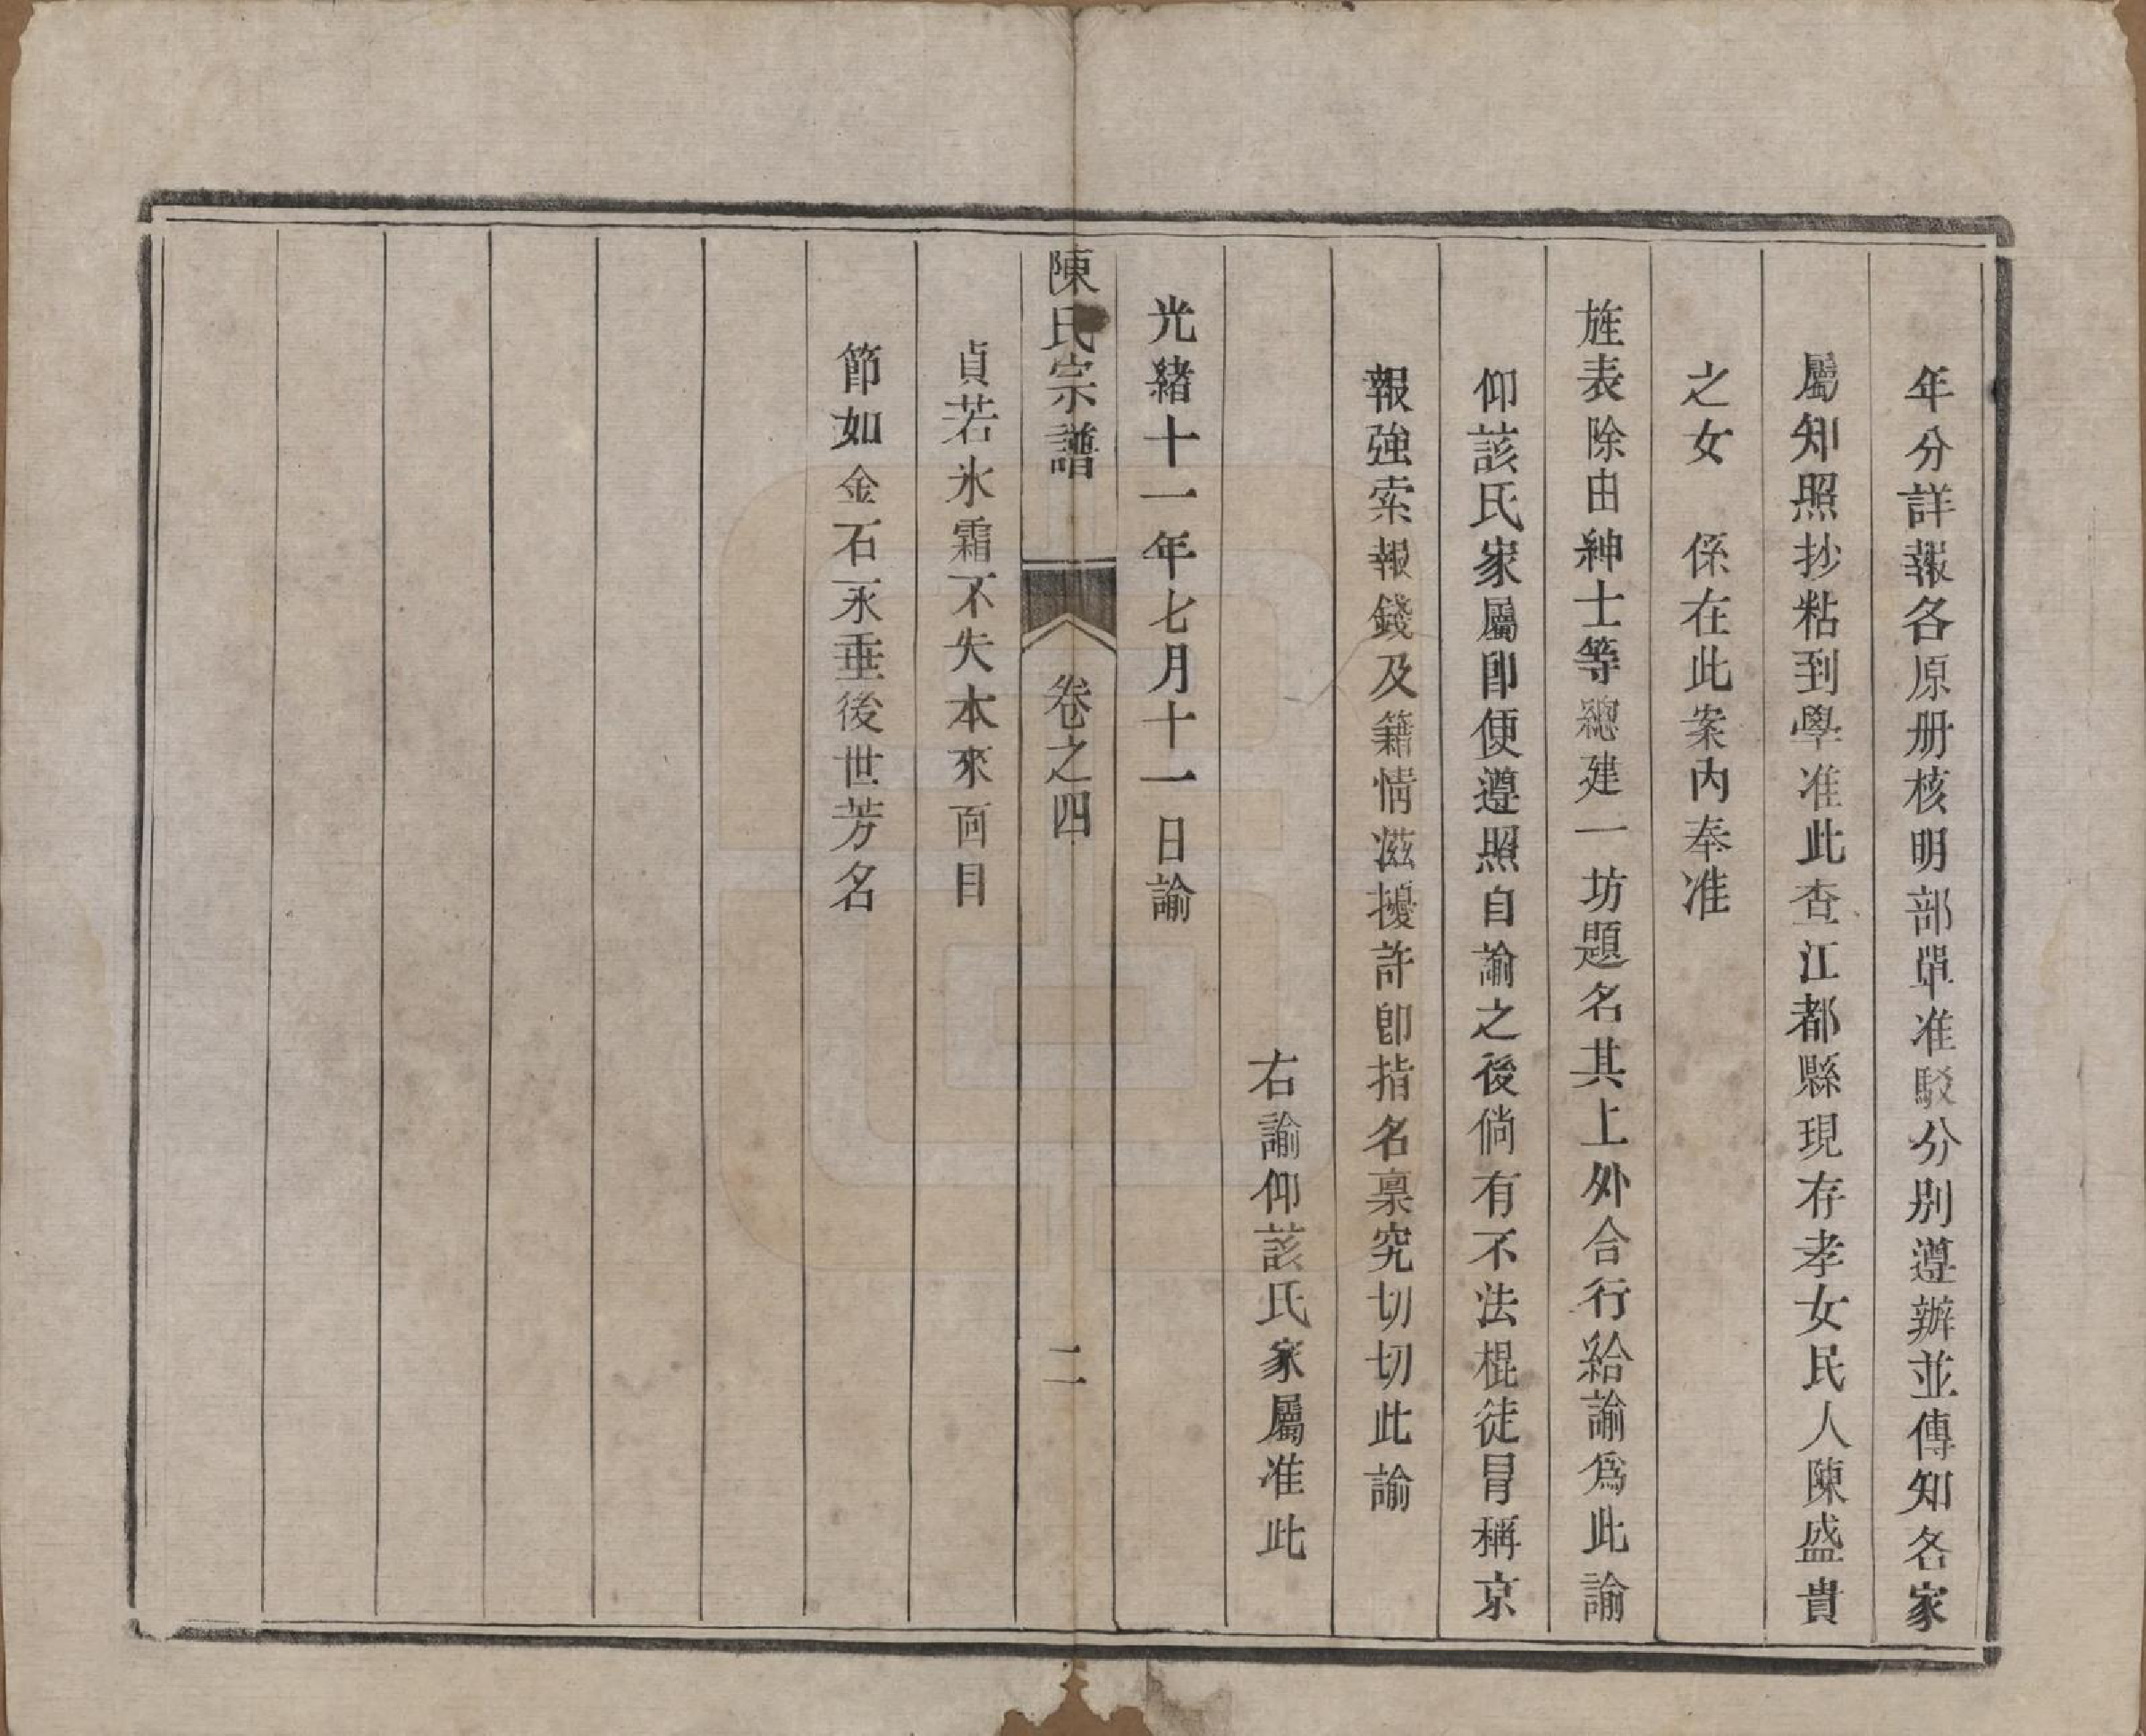 年分詳報各原册核明部單准駁分别遵辦並傳知各家
屬知照抄粘到學准此查江都縣現存孝女民人陳盛貴
之女　係在此案內奉准
旌表除由紳士等總建一坊題名其上外合行給諭爲此諭
仰該氏家屬卽便遵照自諭之後倘有不法棍徒冒稱京
報強索報錢及籍情滋擾許卽指名稟究切切此諭
右諭仰該氏家屬准此
光緒十一年七月十一日諭
陳氏宗譜　卷之四　二
貞若氷霜不失本來面目
節如金石永垂後世芳名